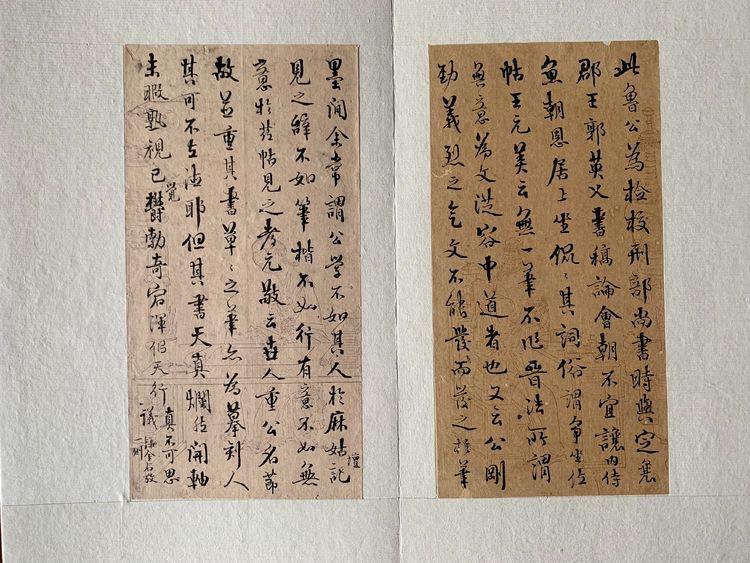 此魯公為檢校刑部尚書時與定襄
郡王郭英乂書稿論會朝不宜讓內侍
魚朝恩居上坐侃〻其詞俗謂爭坐位
帖王元美云無一筆不作晉法所謂
無意為文從容中道者也又云公剛
勁義烈之氣文不能發而發之於筆
墨間余常謂公學不如其人於麻姑壇記
見之辭不如筆楷不如行有意不如無
意於茲帖見之考元敬云世人重公名節
故並重其書草〻之筆亦為摹刻人
其可不立耶但其書天真爛然開軸
未暇熟視已覺鬱勃奇宕渾侶天行真不可思
議錄金石一則